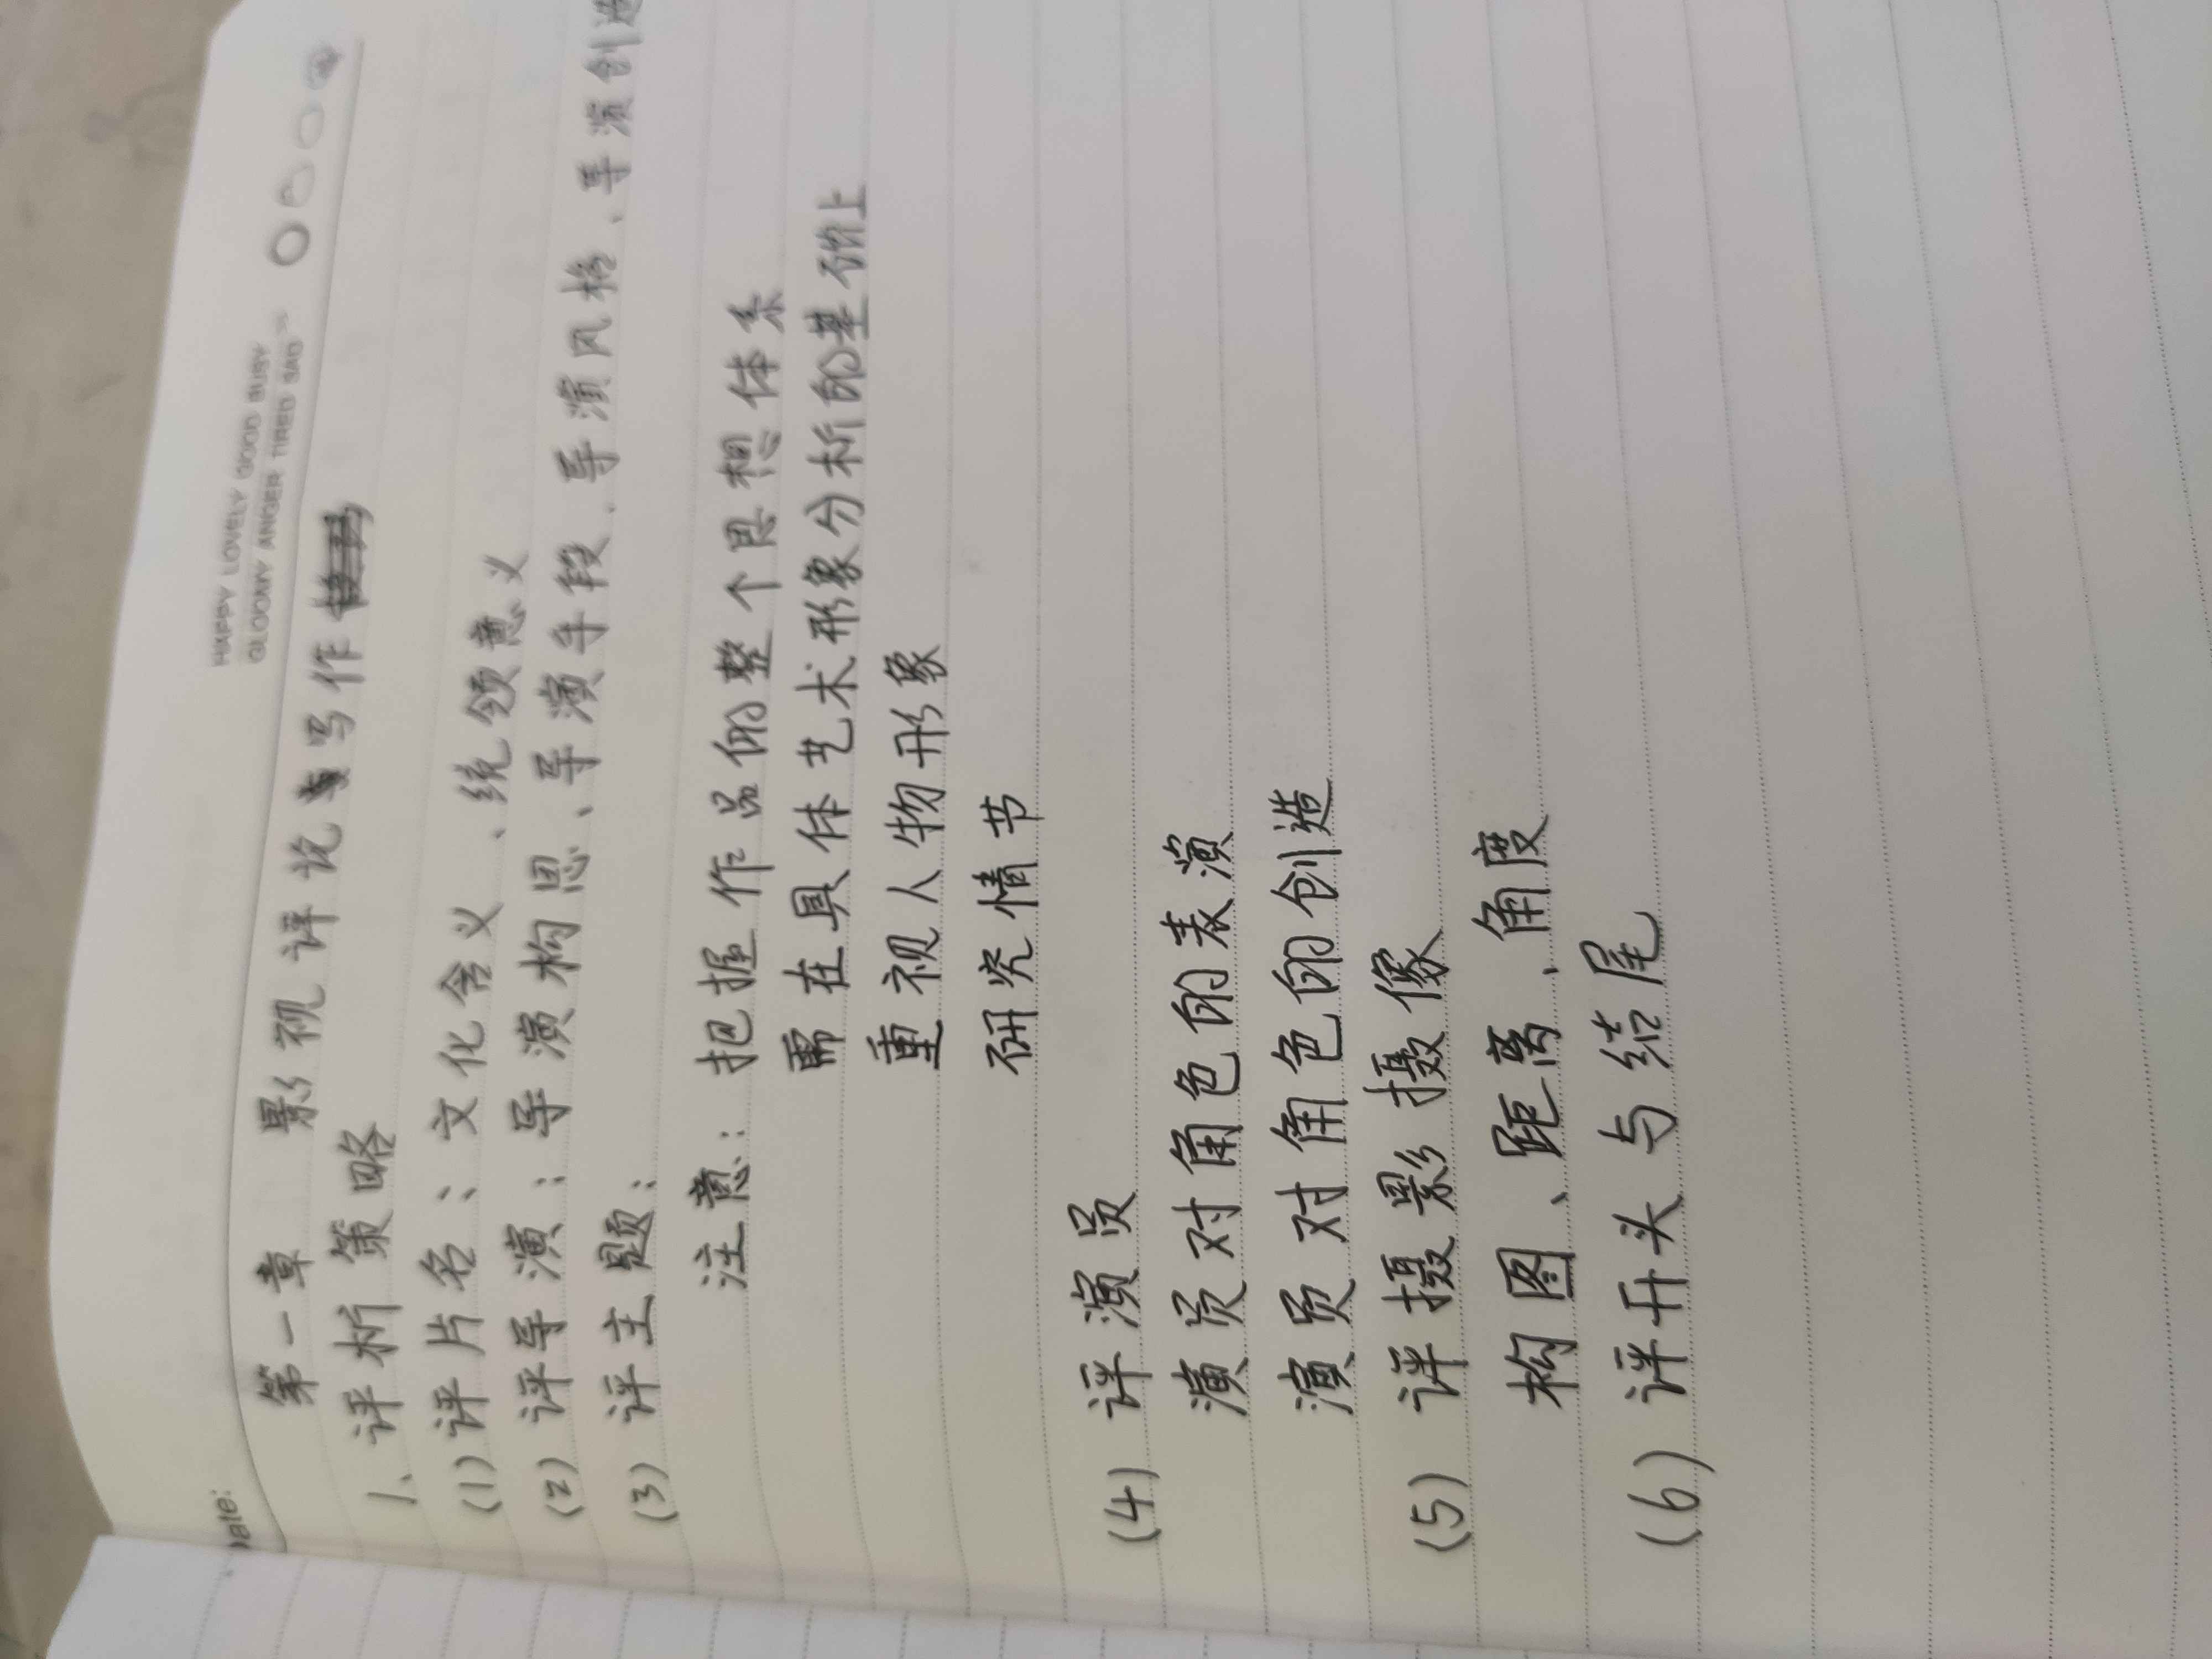 HAPPY LOVELY GOOD BUSY
GLOOMY ANGER TIRED SAD
Date:
第一章 影视评论写作
1、评析策略
(1) 评片名：文化含义、统领意义
(2) 评导演：导演构思、导演手段、导演风格、导演创造
(3) 评主题：
注意：把握作品的整个思想体系
需在具体艺术形象分析的基础上
重视人物形象
研究情节
(4) 评演员
演员对角色的表演
演员对角色的创造
(5) 评摄影摄像
构图、距离、角度
(6) 评开头与结尾